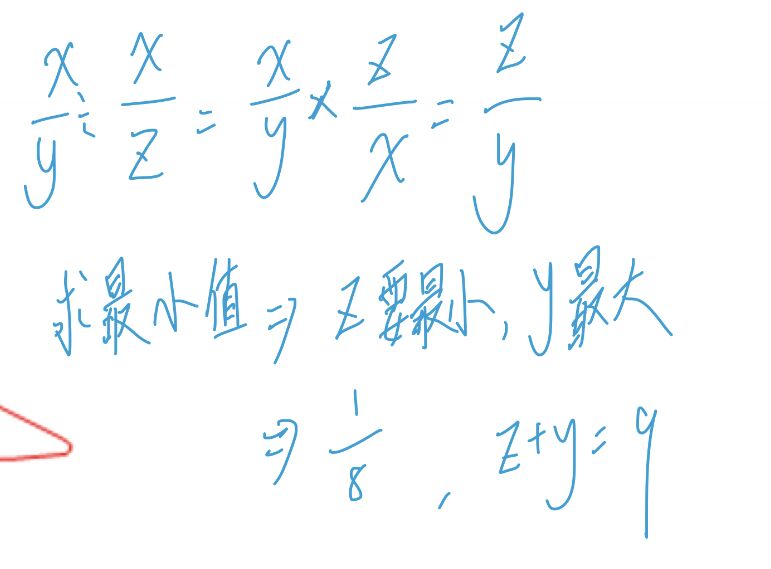 x/y ÷ x/z = x/y × z/x = z/y
求最小值 ⇒ z要最小, y最大
⇒ 1/8 , z+y=9